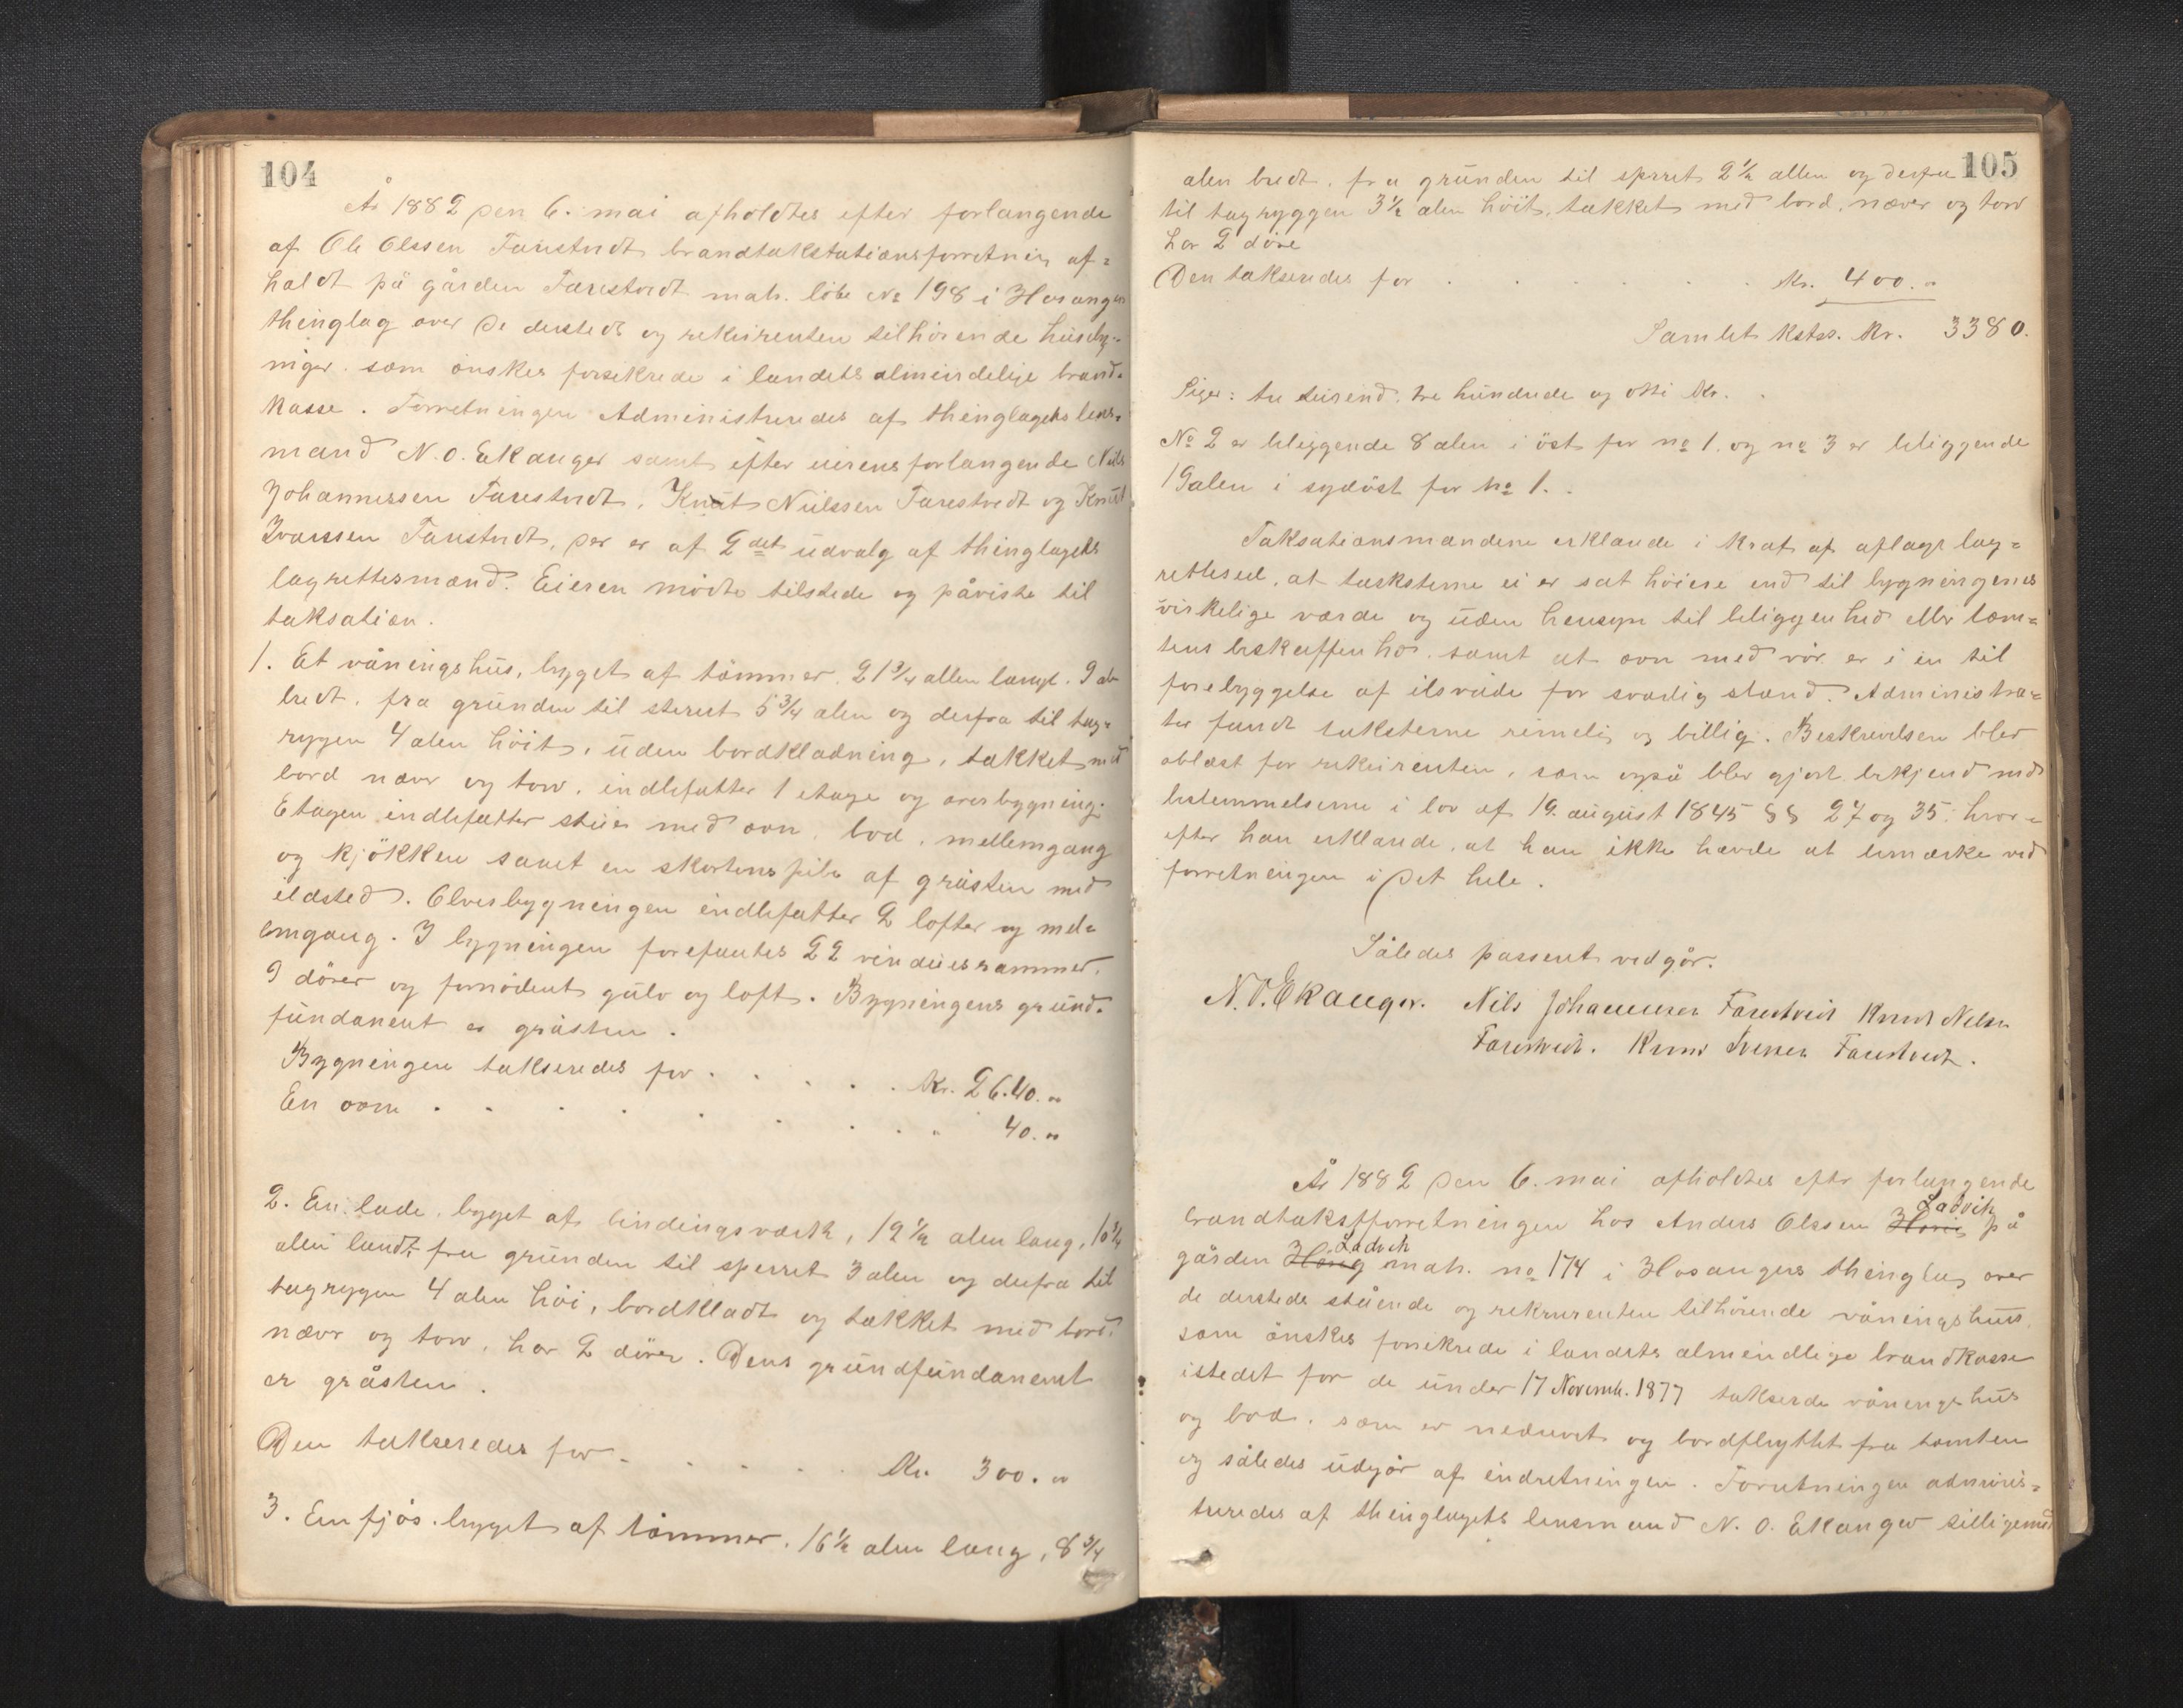 104
År 1882 den 6. mai afholdtes efter forlangende
af Ole Olssen Farestvedt brandtakstationsforretning af=
holdt på gården Farestvedt matr. löbe No 198 i Hosanger
thinglag over de dersteds og rekvirenten tilhörende husebyg=
niger som önskes forsekrede i landets almindelige brand=
kasse. Forretningen Administreredes af thinglagets lens=
mand N. O. Ekanger samt efter eierens forlangende Nils
Johannessen Farestvedt, Knut Nielssen Farestvedt og Knut
Ivarssen Farestvedt, der er af 2det udvalg af thinglagets
lagrettesmænd. Eieren mödte tilstede og påviste til
taksation.
1. Et våningshus, bygget af tömmer 21 3/4 allen langt. 9 al
bredt. fra grunden til sterret 5 3/4 alen og derfra til tag=
rygen 4 alen höit, uden bordklædning, takket med
bord næver og torv. indbefatter 1 etage og overbygning.
Etagen indbefatter stue med ovn, bod, mellemgang
og kjökken samt en skorstenspibe af gråsten med
ildsted. Overbygningen indbefatter 2 lofter og mel=
emgang. I bygningen forefantes 22 vinduesrammer,
9 dörer og fornödent gulv og loft. Bygningens grund=
fundament er gråsten.
Bygningen takseredes for . . . . . Kr. 26.40. "
En ovn . . . . . . . . . 40. "
2. En lade, bygget af bindingsværk, 12 1/2 alen lang, 10 3/4
alen bredt fra grunden til sperret 3 alen og derfra til
tagrygen 4 alen höi, bordkladt og takket med bord.
næver og torv, har 2 dörer. Dens grundfundament
er gråsten.
Den takseredes for . . . . . Kr. 300. "
3. En fjös bygget af tömmer, 16 1/2 alen lang, 8 3/4
105
alen bredt. fra grunden til sperret 2 1/2 allen og derfra
til tagryggen 3 1/2 alen höit, takket med bord, næver og torv
har 2 döre
Den takseredes for . . . . . Kr. 400. "
Samlet Kr. 3380.
Siger: tre tusend, tre hundrede og otti Kr.
No 2 er beliggende 8 alen i öst for no 1. og no 3 er beliggende
19 alen i sydöst for no 1.
Taksationsmændene erklærede i kraft af aflagt lag=
rettesed, at taksterne ei er sat höiere end til bygningenes
virkelige værde og uden hensyn til beliggenhed eller tom=
tens beskaffenhd. samt at ovn med rör er i en til
forebyggelse af ilsvåde forsvarlig stand. Administra=
tor fandt taksterne rimelig og billig. Beskrivelsen blev
oblæst for rekvirenten, som også blev gjort bekjend med
bestemmelserne i lov af 19. august 1845 §§ 27 og 35: hvor=
efter han erklærede, at han ikke havde at bemærke ved
forretningen i det hele.
Således passeret vedgår.
N. O. Ekanger. Nils Johannesen Farestveit Knud Nilsen
Farestvedt. Knud Iversen Farestvedt.
År 1882 den 6. mai afholdtes eftr forlangende
Ladvik
brandtakstforretningen hos Anders Olssen på
Ladvik
gården matr. no 174 i Hosangers thinglag over
de dersteds stående og rekvirenten tilhörende våningshus,
som önskes forsekrede i landets almindlige brandkasse
istedet for de under 17 Novemb. 1877 takserede våningshus
og bod, som er nedrevet og bordflyttet fra tomten
og således udgår af indretningen. Forretningen adminis=
treredes af thinglagets lensmand N. O. Ekanger tilligemed